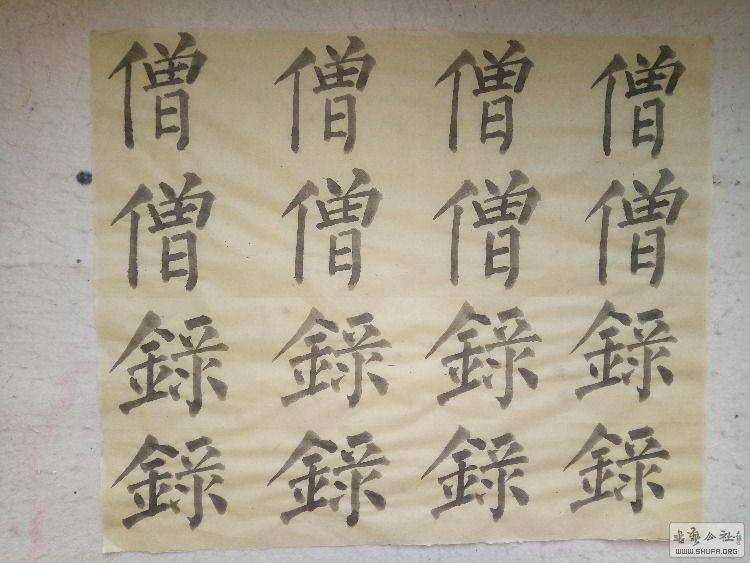 僧僧僧僧
僧僧僧僧
錄錄錄錄
錄錄錄錄
书艺公社
WWW.SHUFA.ORG